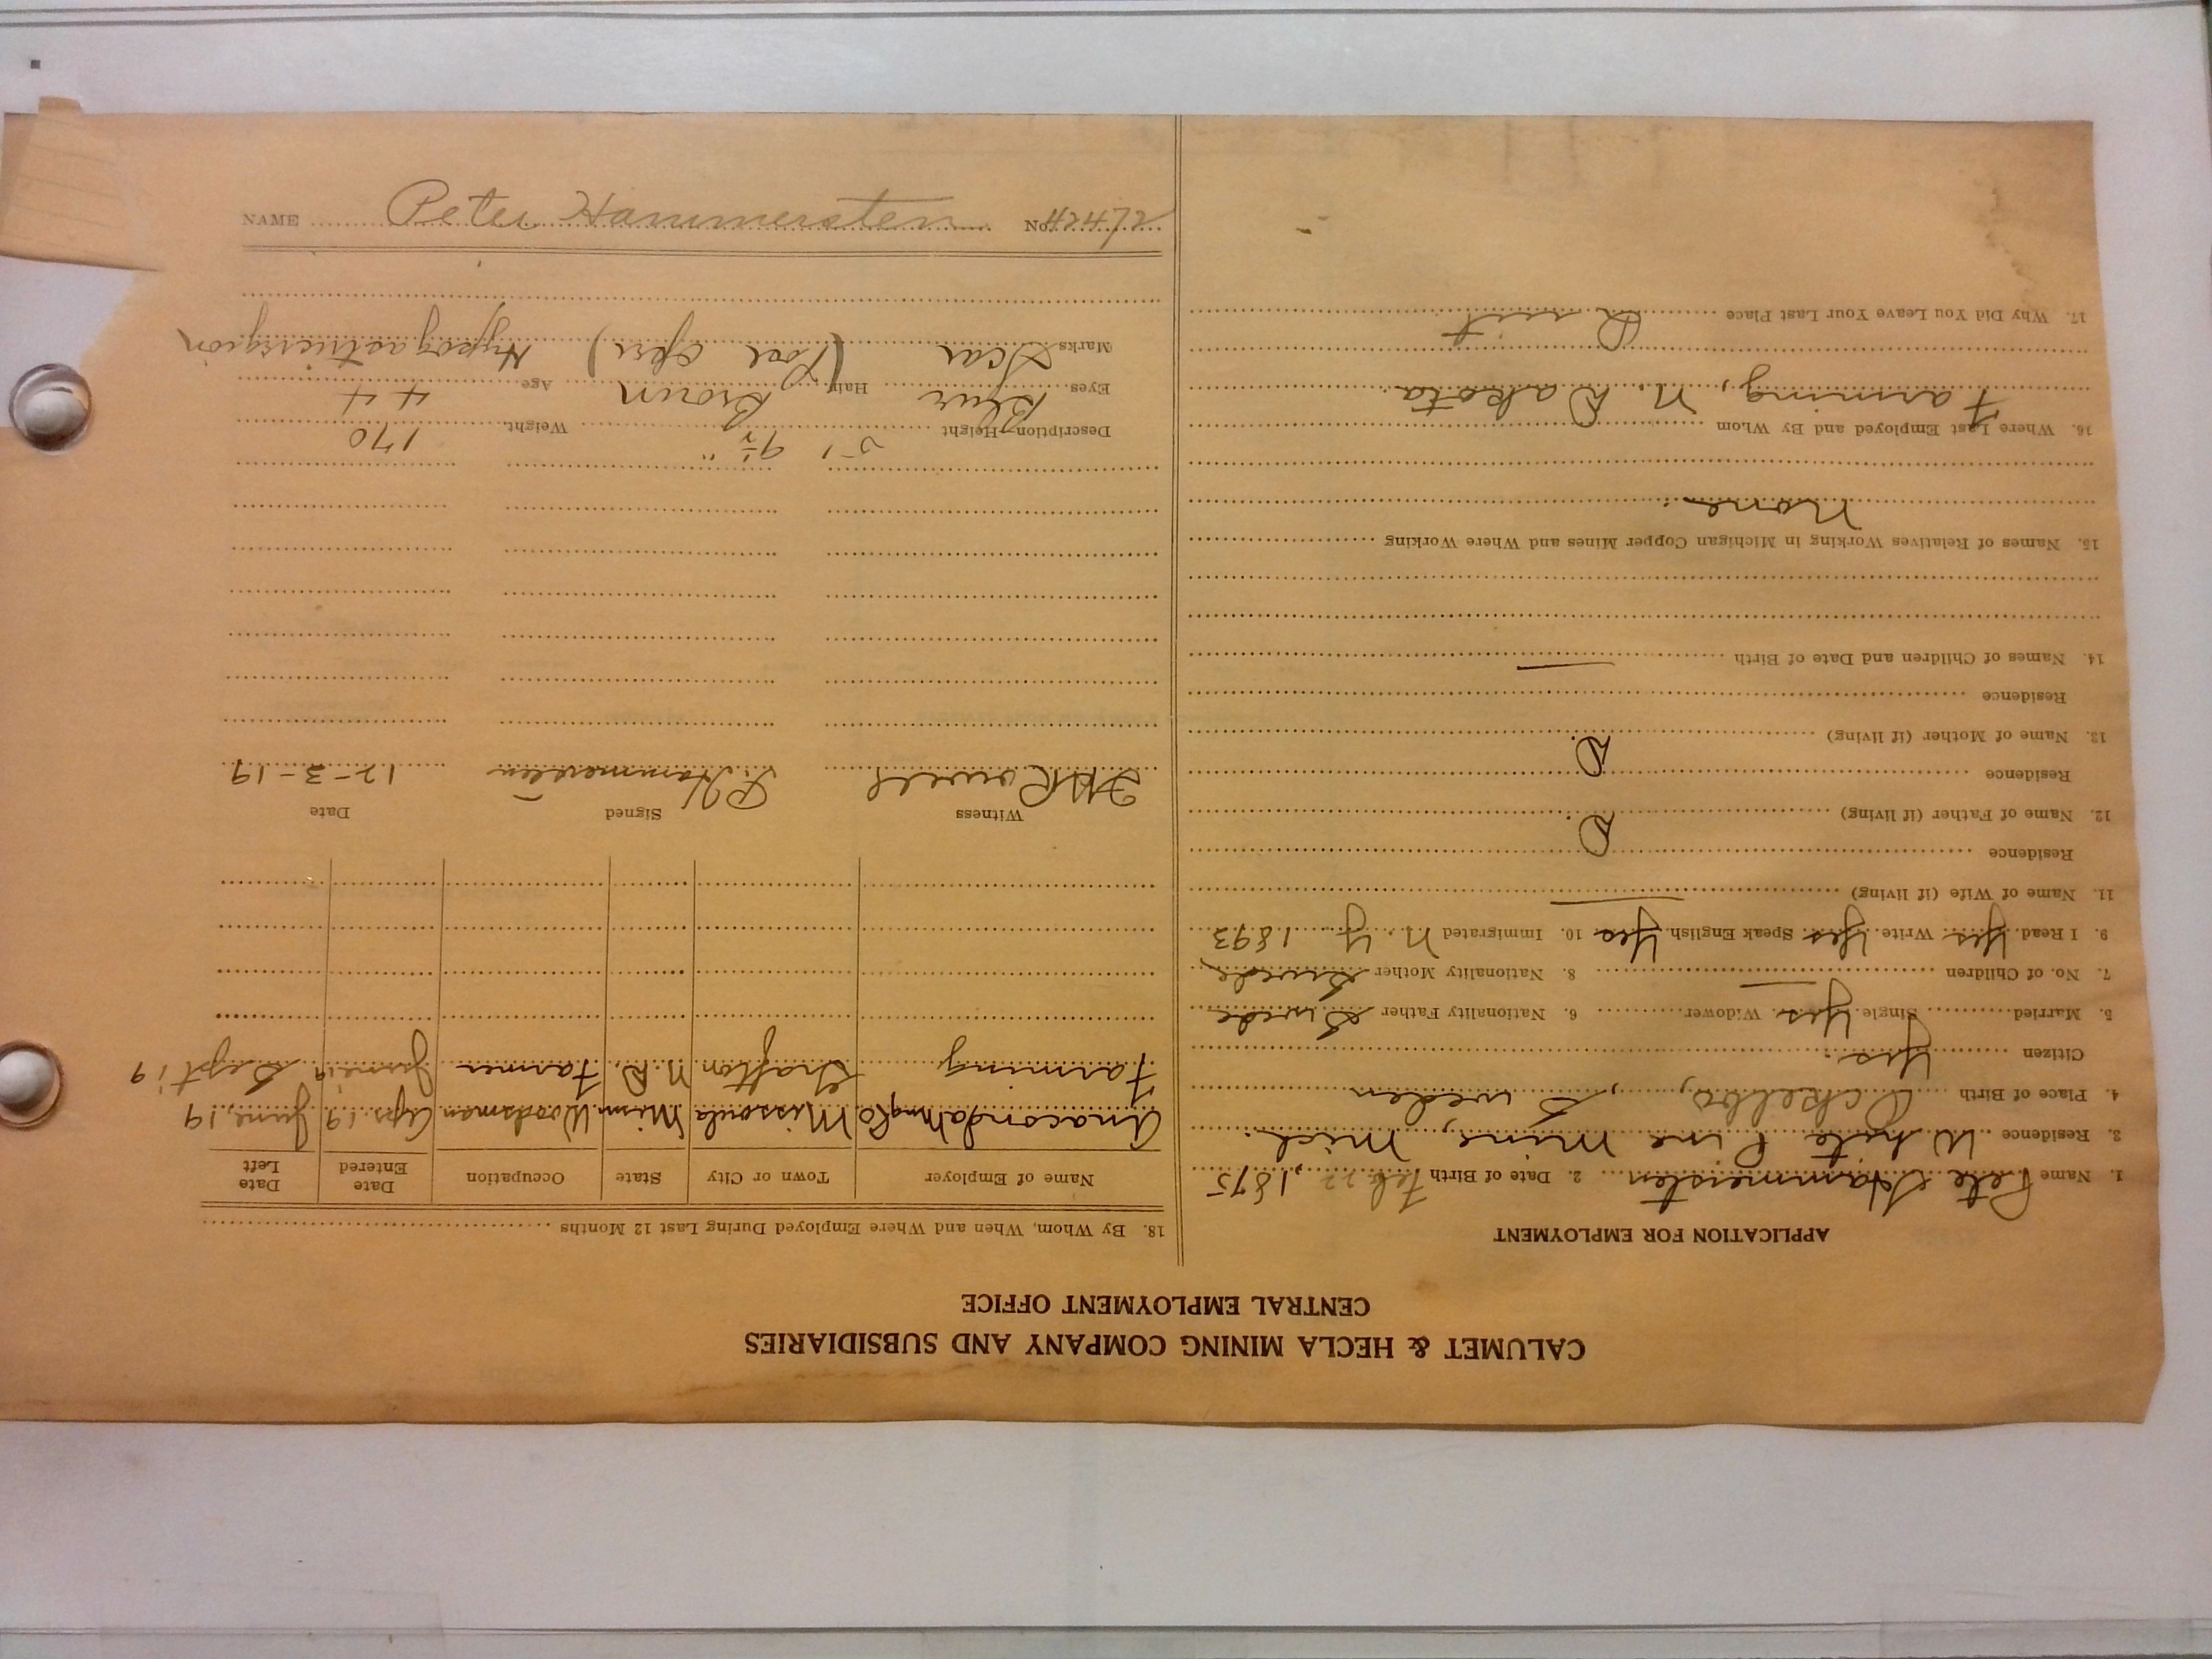 CALUMET & HECLA MINING COMPANY AND SUBSIDIARIES
CENTRAL EMPLOYMENT OFFICE
APPLICATION FOR EMPLOYMENT
1. Name Pete Hammersten 2. Date of Birth Feb. 22, 1875
3. Residence White Pine Mine, Mich.
4. Place of Birth Ockelbo, Sweden
Citizen Yes.
5. Married Single Yes. Widower 6. Nationality Father Swede
7. No. of Children — 8. Nationality Mother Swede
9. I Read Yes Write Yes Speak English Yes 10. Immigrated N. Y. 1893
11. Name of Wife (if living) —
Residence
12. Name of Father (if living) D.
Residence
13. Name of Mother (if living) D.
Residence
14. Names of Children and Date of Birth —
15. Names of Relatives Working in Michigan Copper Mines and Where Working
None.
16. Where Last Employed and By Whom
Farming, N. Dakota.
17. Why Did You Leave Your Last Place Quit
18. By Whom, When and Where Employed During Last 12 Months
Name of Employer Town or City State Occupation Date Entered Date Left
Anaconda Mng Co. Missoula Woodsman 19 June, 19
Farming Grafton N. D. Farmer June, 19 Sept 19
Witness Signed Date
Rowell P. Hammersten 12-3-19
Description—Height 5' 9½" Weight 170
Eyes Blue Hair Brown Age 44
Marks Scar
NAME Peter Hammersten No. 42472